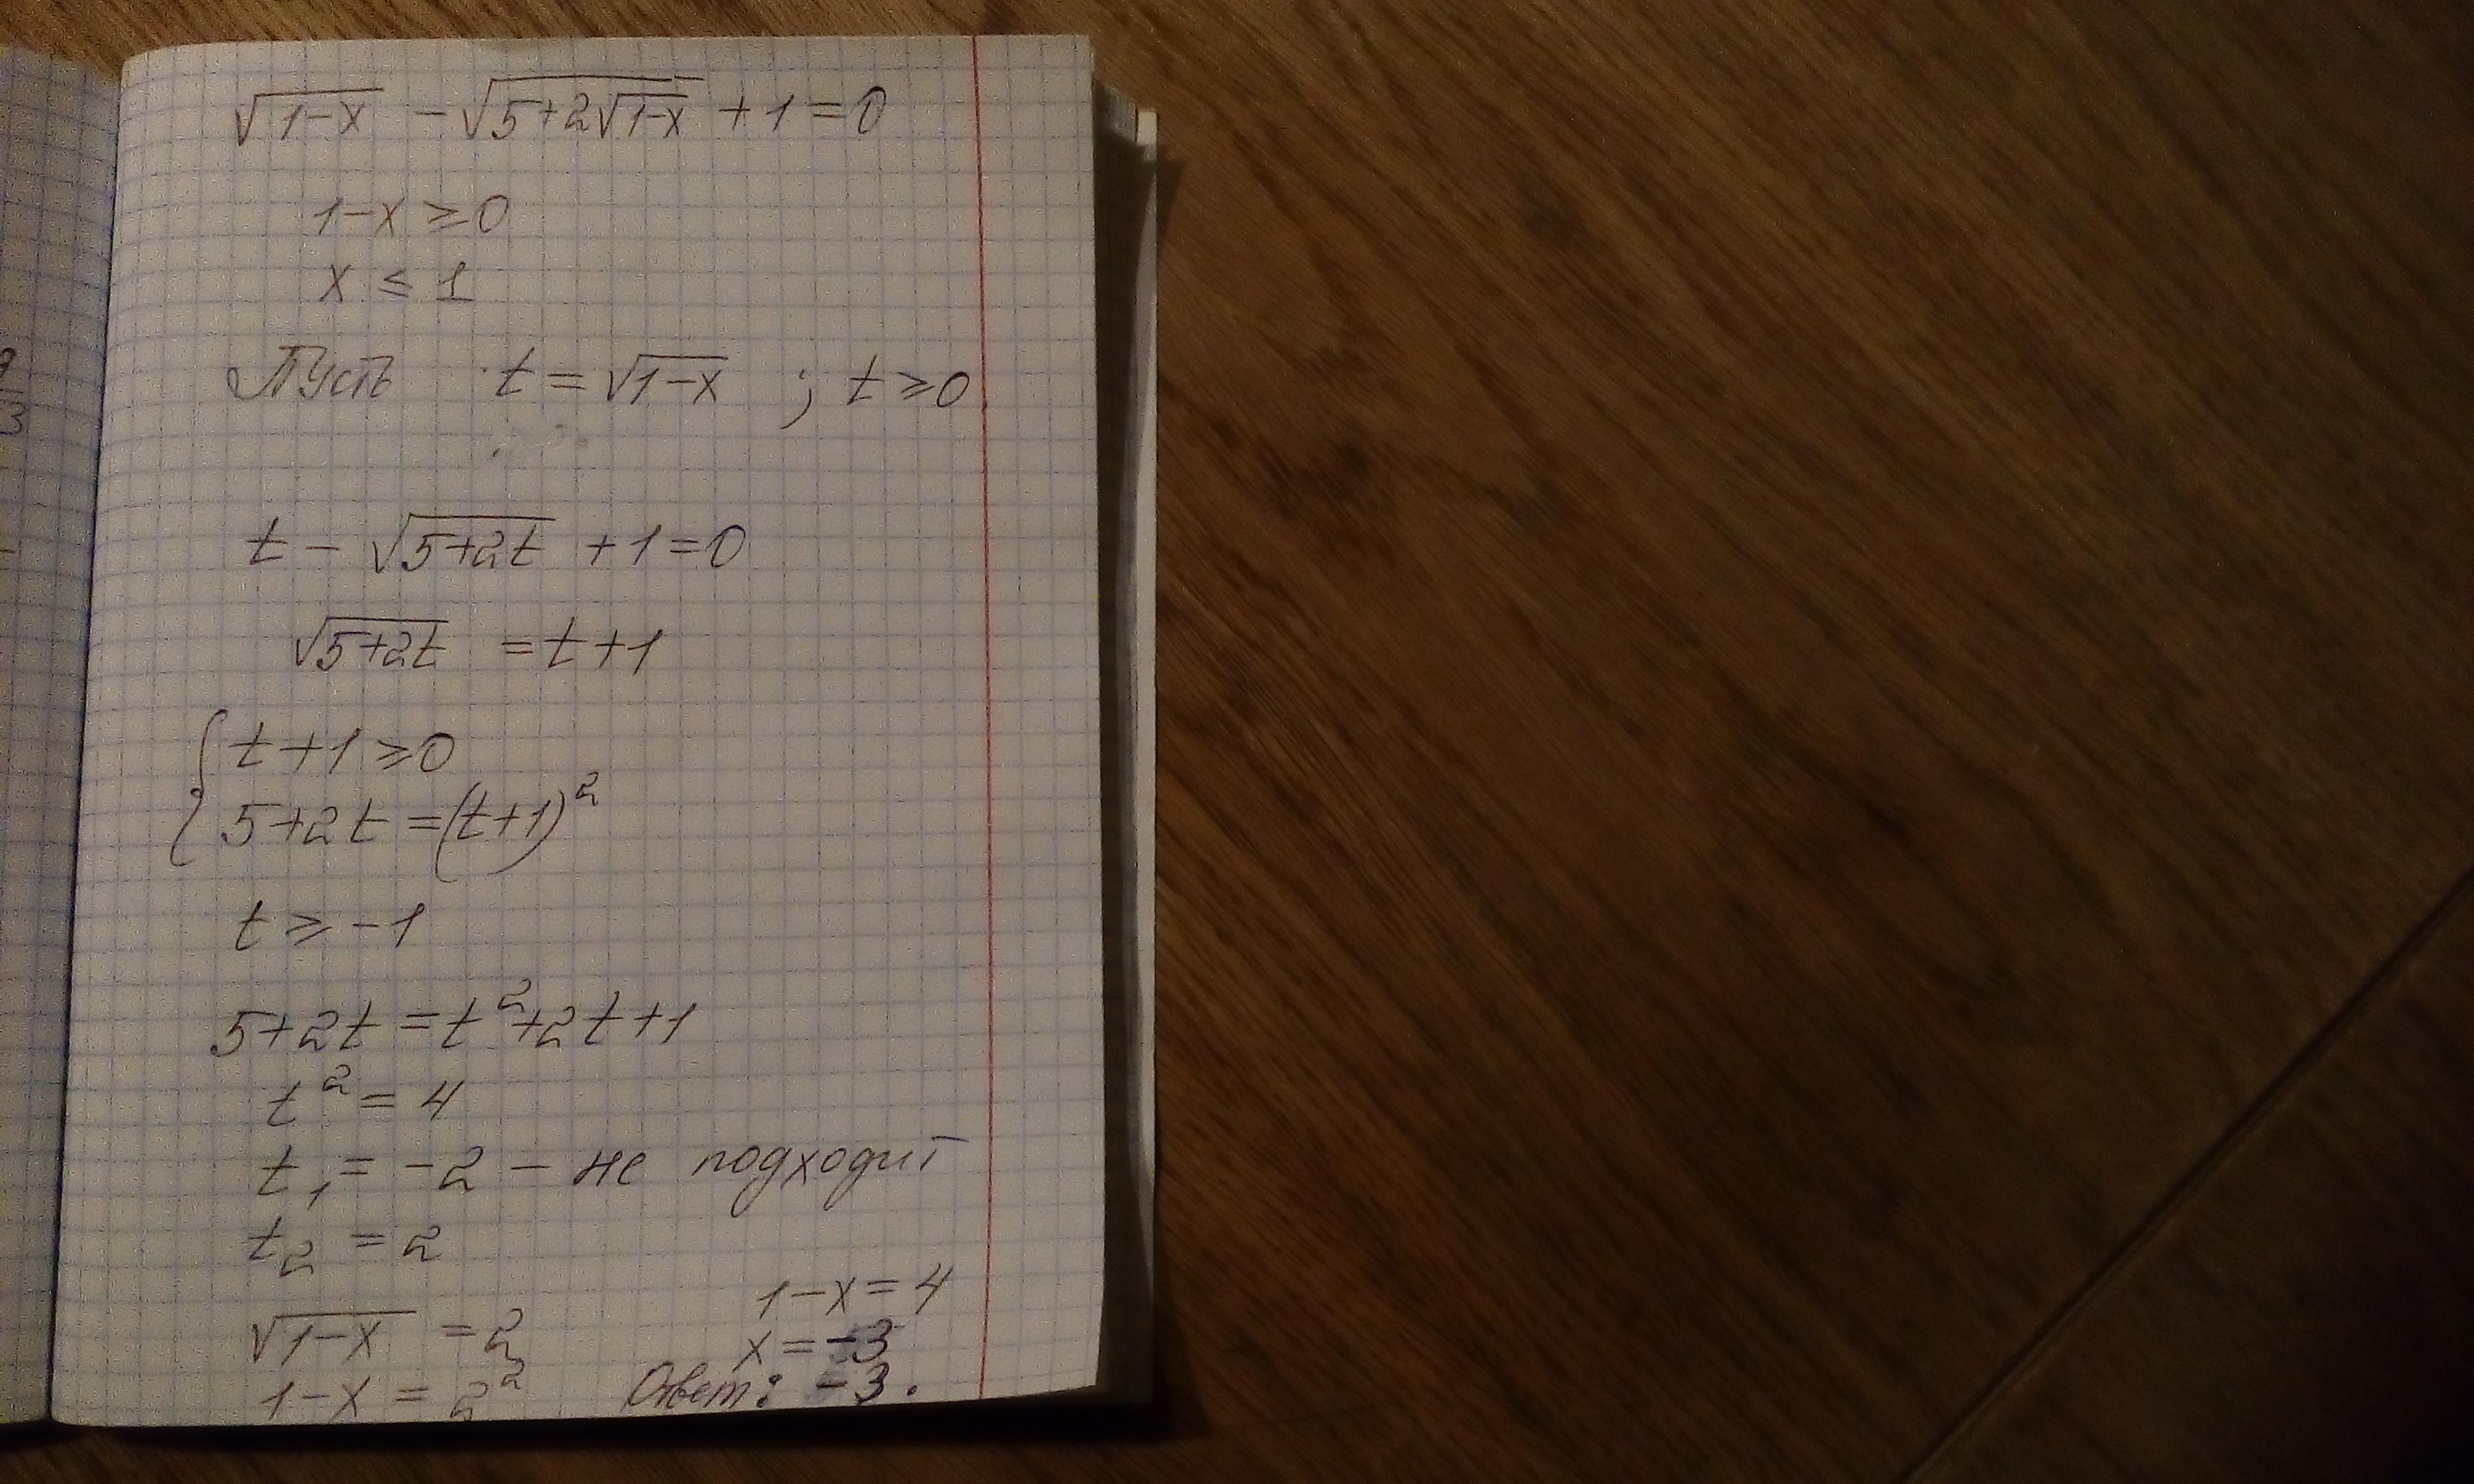 √(1-x) - √(5+2√(1-x)) + 1 = 0
1-x ≥ 0
x ≤ 1
Пусть t = √(1-x) ; t ≥ 0
t - √(5+2t) + 1 = 0
√(5+2t) = t+1
{ t+1 ≥ 0
5+2t = (t+1)²
t ≥ -1
5+2t = t²+2t+1
t² = 4
t₁ = -2 - не подходит
t₂ = 2
√(1-x) = 2
1-x = 2²
1-x = 4
x = -3
Ответ: -3.
9
3